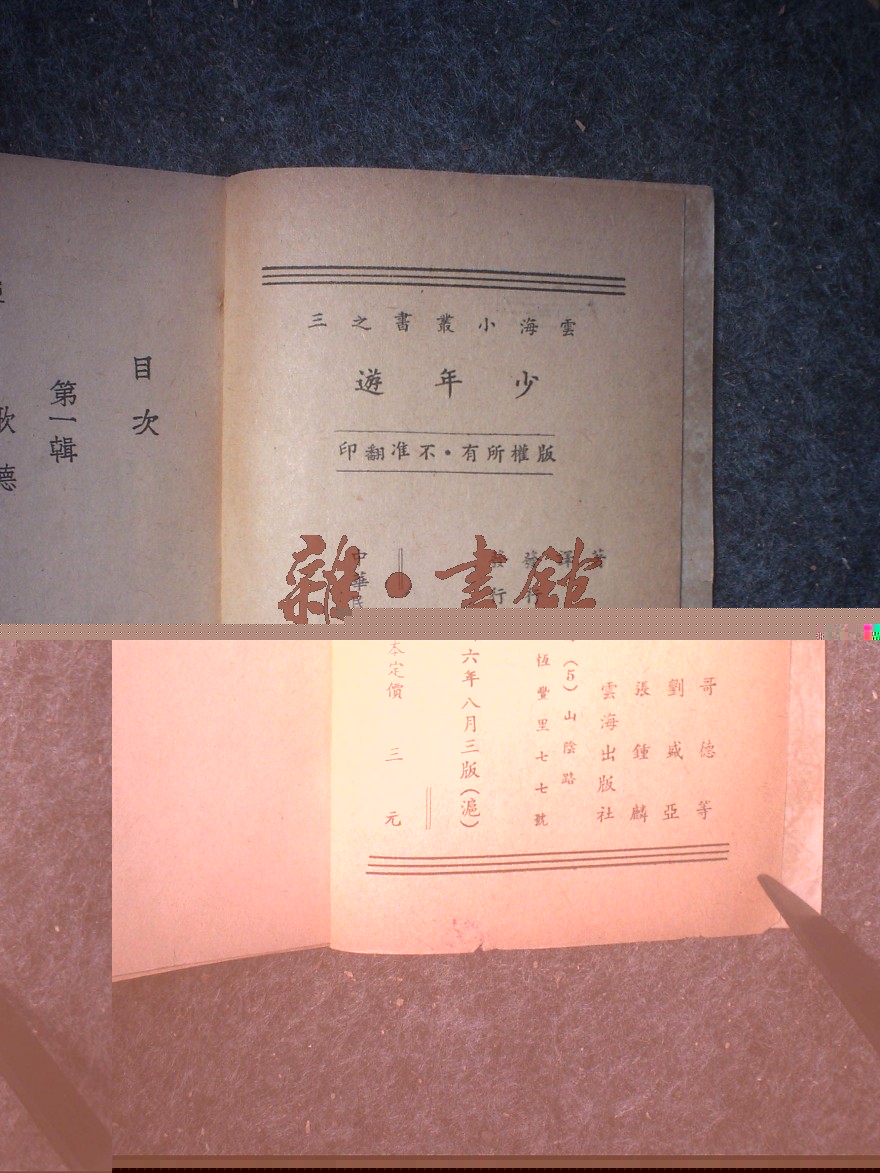 雲海小叢書之三
少年遊
版權所有·不准翻印
著
譯
發
發行
中華民
哥德等
劉盛亞
張鍾麟
雲海出版社
(5)山陰路
恆豐里七七號
六年八月三版(滬)
本定價三元
目次
第一輯
歌德
雜·書館